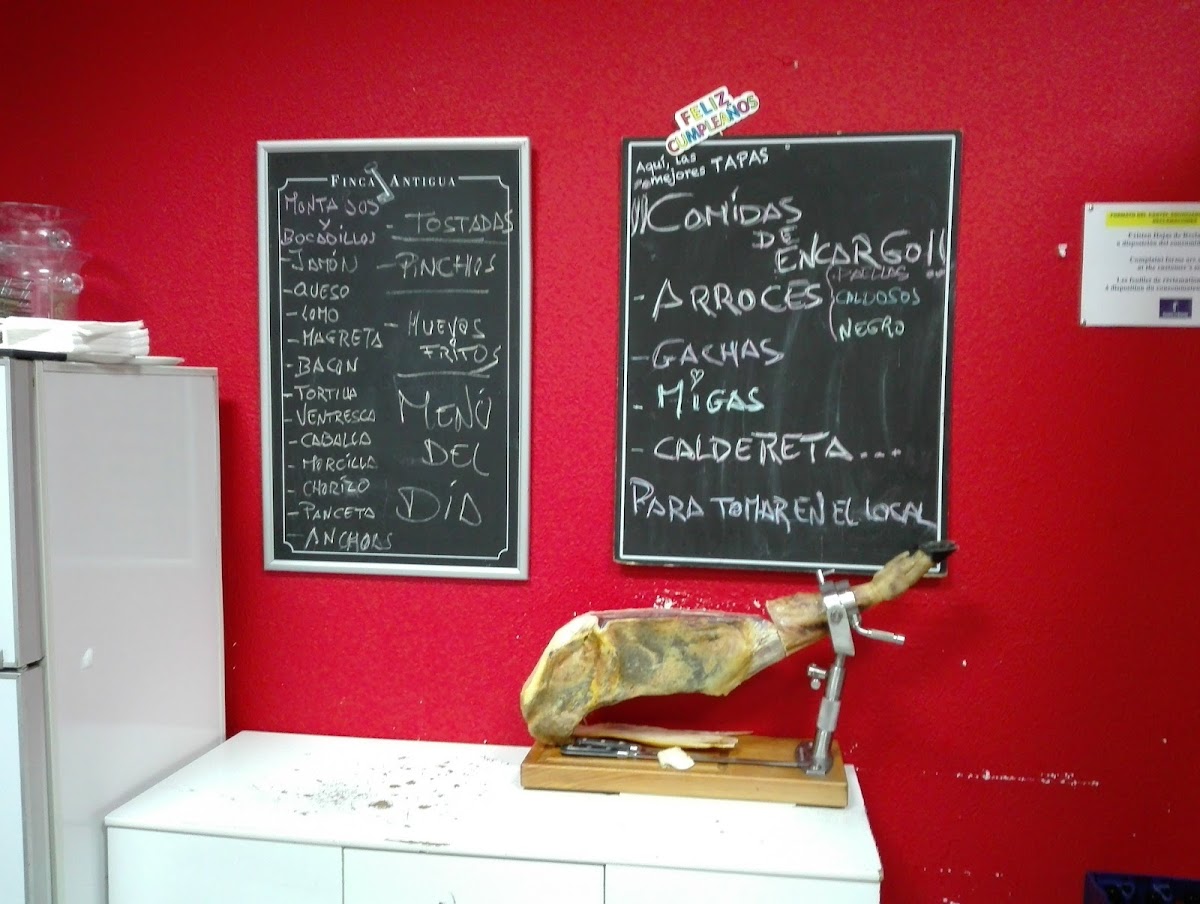 FINCA ANTIGUA
MONTADOS
Y
BOCADILLOS
-JAMÓN
-QUESO
-LOMO
-MAGRETA
-BACON
-TORTILLA
-VENTRESCA
-CABALLA
-MORCILLA
-CHORIZO
-PANCETA
-ANCHOAS
- TOSTADAS
- PINCHOS
- HUEVOS
FRITOS
MENÚ
DEL
DÍA
FELIZ
CUMPLEAÑOS
Aquí, las
mejores TAPAS
¡¡COMIDAS
DE
ENCARGO!!
- ARROCES
PAELLAS
CALDOSOS
NEGRO
- GACHAS
- MIGAS
- CALDERETA...
PARA TOMAR EN EL LOCAL
Existen Hojas de
a disposición del
Complaint forms are
at the customer's
Les feuilles de
à disposition du